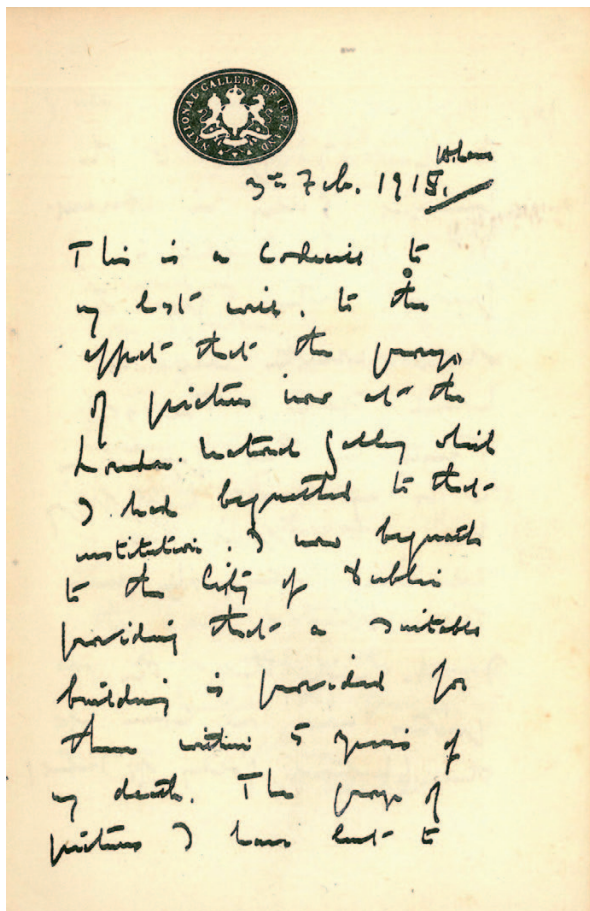 NATIONAL GALLERY OF IRELAND
H. Lane
3rd Feb. 1915.
This is a Codicil to
my last will, to the
effect that the group
of pictures now at the
London National Gallery which
I had bequeathed to that
institution, I now bequeath
to the City of Dublin
providing that a suitable
building is provided for
them within 5 years of
my death. The group of
pictures I have lent to